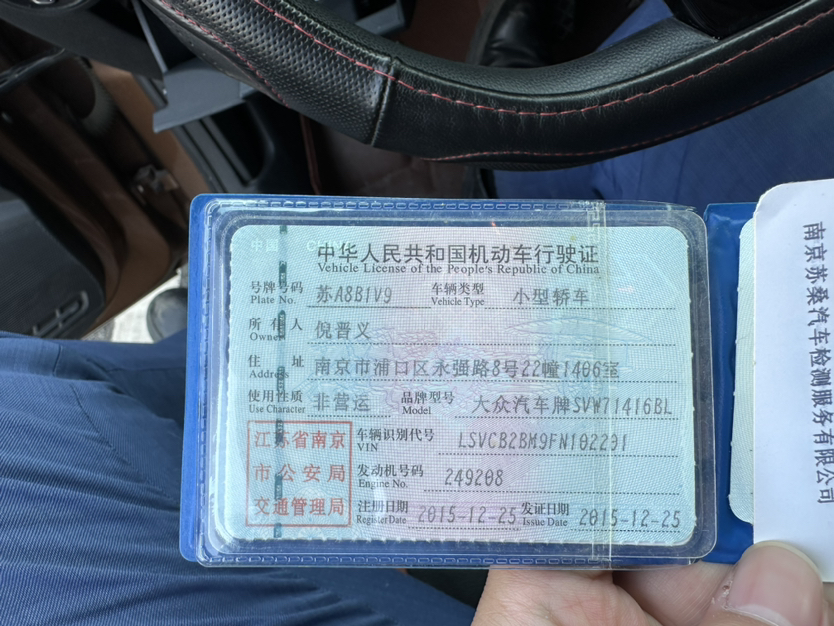 中国 CHINA
中华人民共和国机动车行驶证
Vehicle License of the People's Republic of China
号牌号码 苏A8B1V9 车辆类型 小型轿车
Plate No. Vehicle Type
所有人 倪晋义
Owner
住址 南京市浦口区永强路8号22幢1406室
Address
使用性质 非营运 品牌型号 大众汽车牌SVW71416BL
Use Character Model
江苏省南京
市公安局
交通管理局
车辆识别代号 LSVCB2BM9FN102291
VIN
发动机号码 249208
Engine No.
注册日期 2015-12-25 发证日期 2015-12-25
Register Date Issue Date
南京苏桑汽车检测服务有限公司